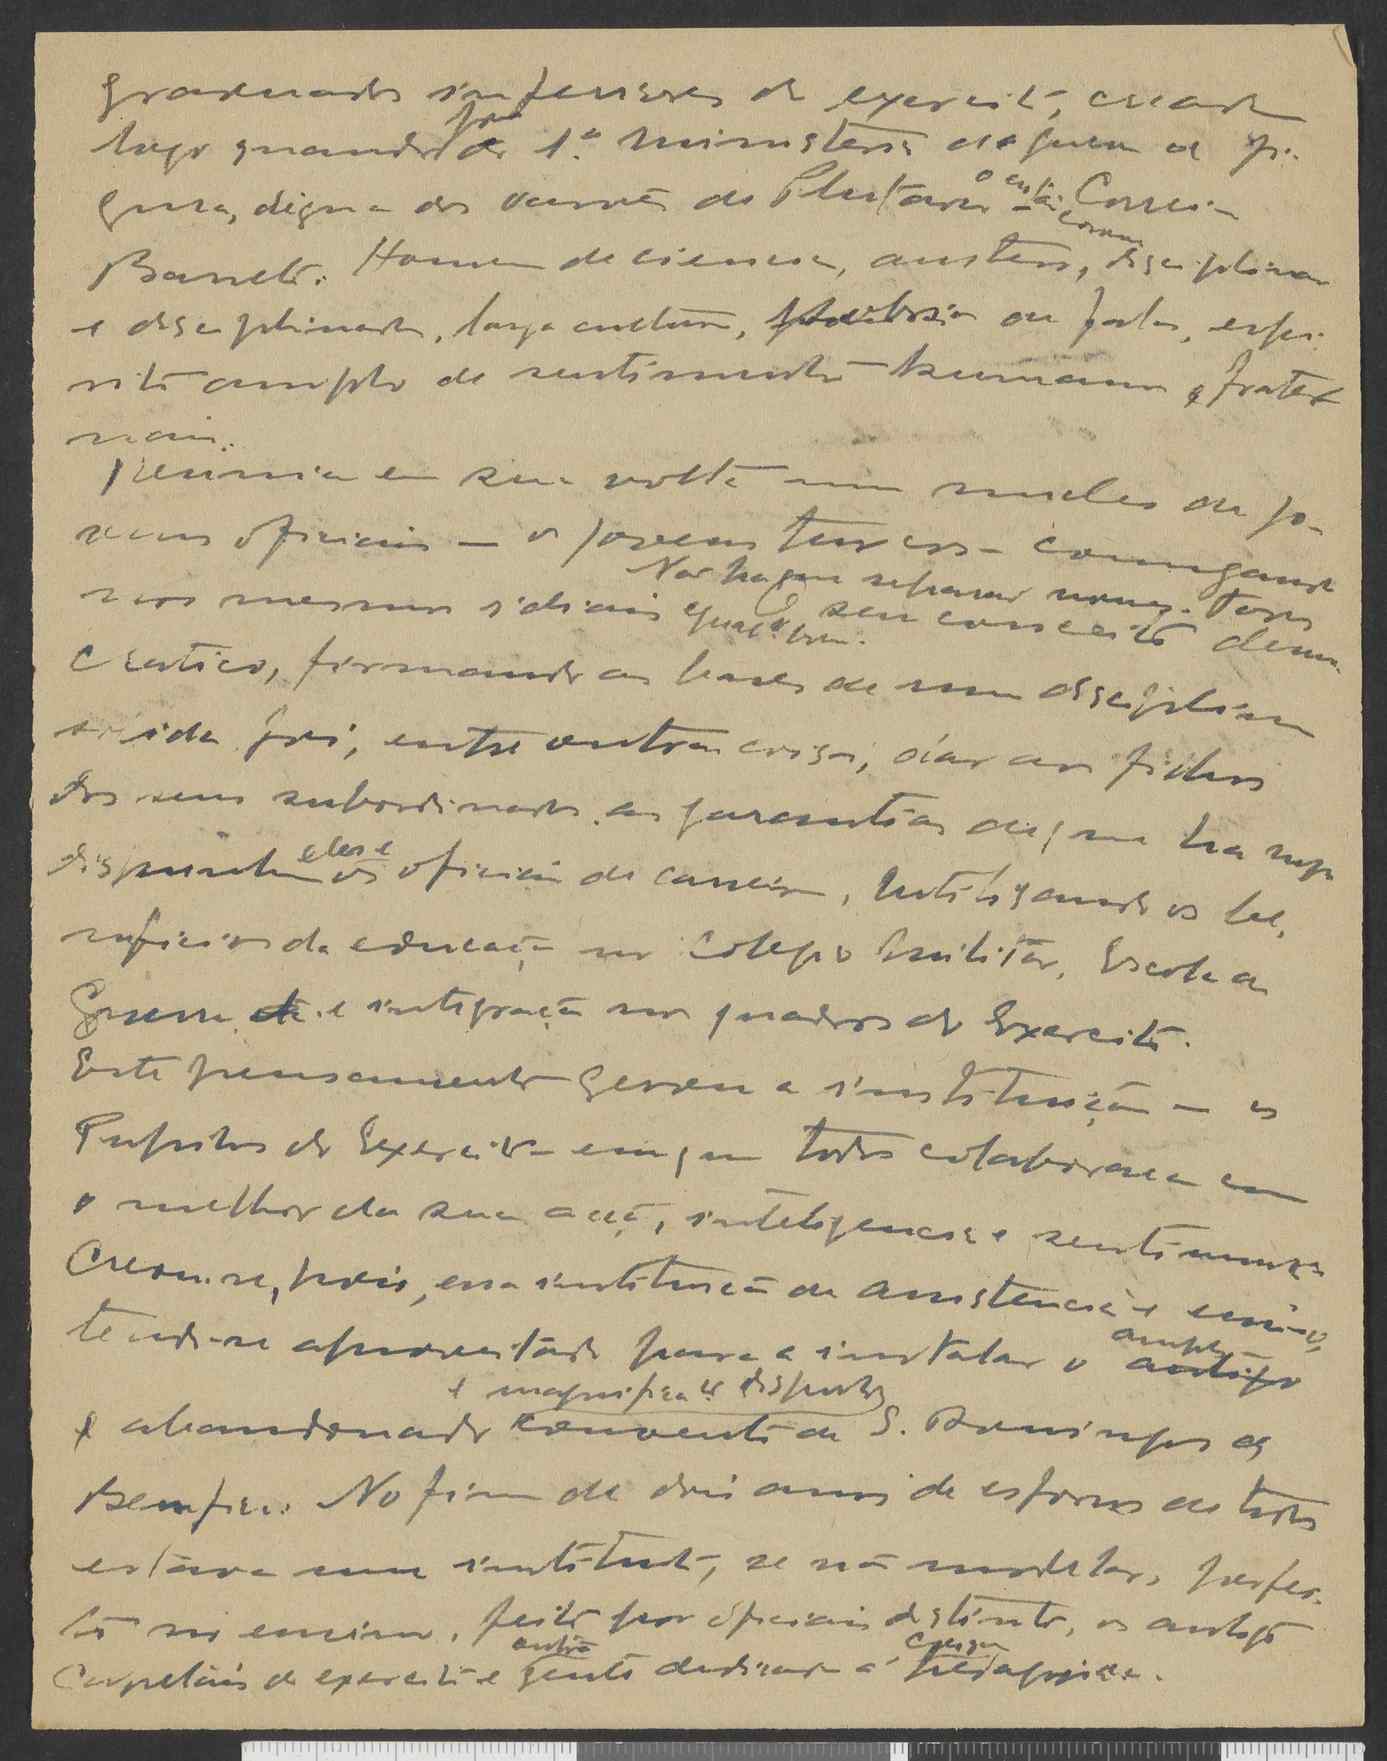 graduados inferiores do exercito, creada
logo quando foi do 1º ministerio da guerra a fi-
gura, digna dos varões de Plutarco o então coronel Correia
Barreto. Homem de ciencia, austero, disciplinador
e disciplinado, larga cultura, espi-
rito amplo de sentimentos humanos e frater
nais.
reunia em sua volta um nucleo de jo-
vens oficiais — os jovens turcos — comungando
Não ha que separar nomes. Todos
nos mesmos ideiais e seu conceito demo-
cratico, firmando as bases de uma disciplina
foi, entre outras coisas, dar aos filhos
dos seus subordinados as garantias de que
os oficiais de carreira, utilisando os be-
neficios da educação no Colegio Militar, Escola de
Guerra e integração nos quadros do Exercito.
Este pensamento gerou a instituição — os
Pupilos do Exercito em que todos colaboraram com
o melhor da sua acção, inteligencia e sentimento
Creou-se, pois, essa instituição de assistencia e ensino,
tendo-se aproveitado para a instalar o amplo antigo
e magnifico disposto
e abandonado convento de S. Domingos de
Bemfica. No fim de dois anos de esforços de todos
estava um instituto, se não modelar, perfei-
to no ensino, feito por oficiais distintos, os antigos
capelães do exercito e outra gente dedicada á